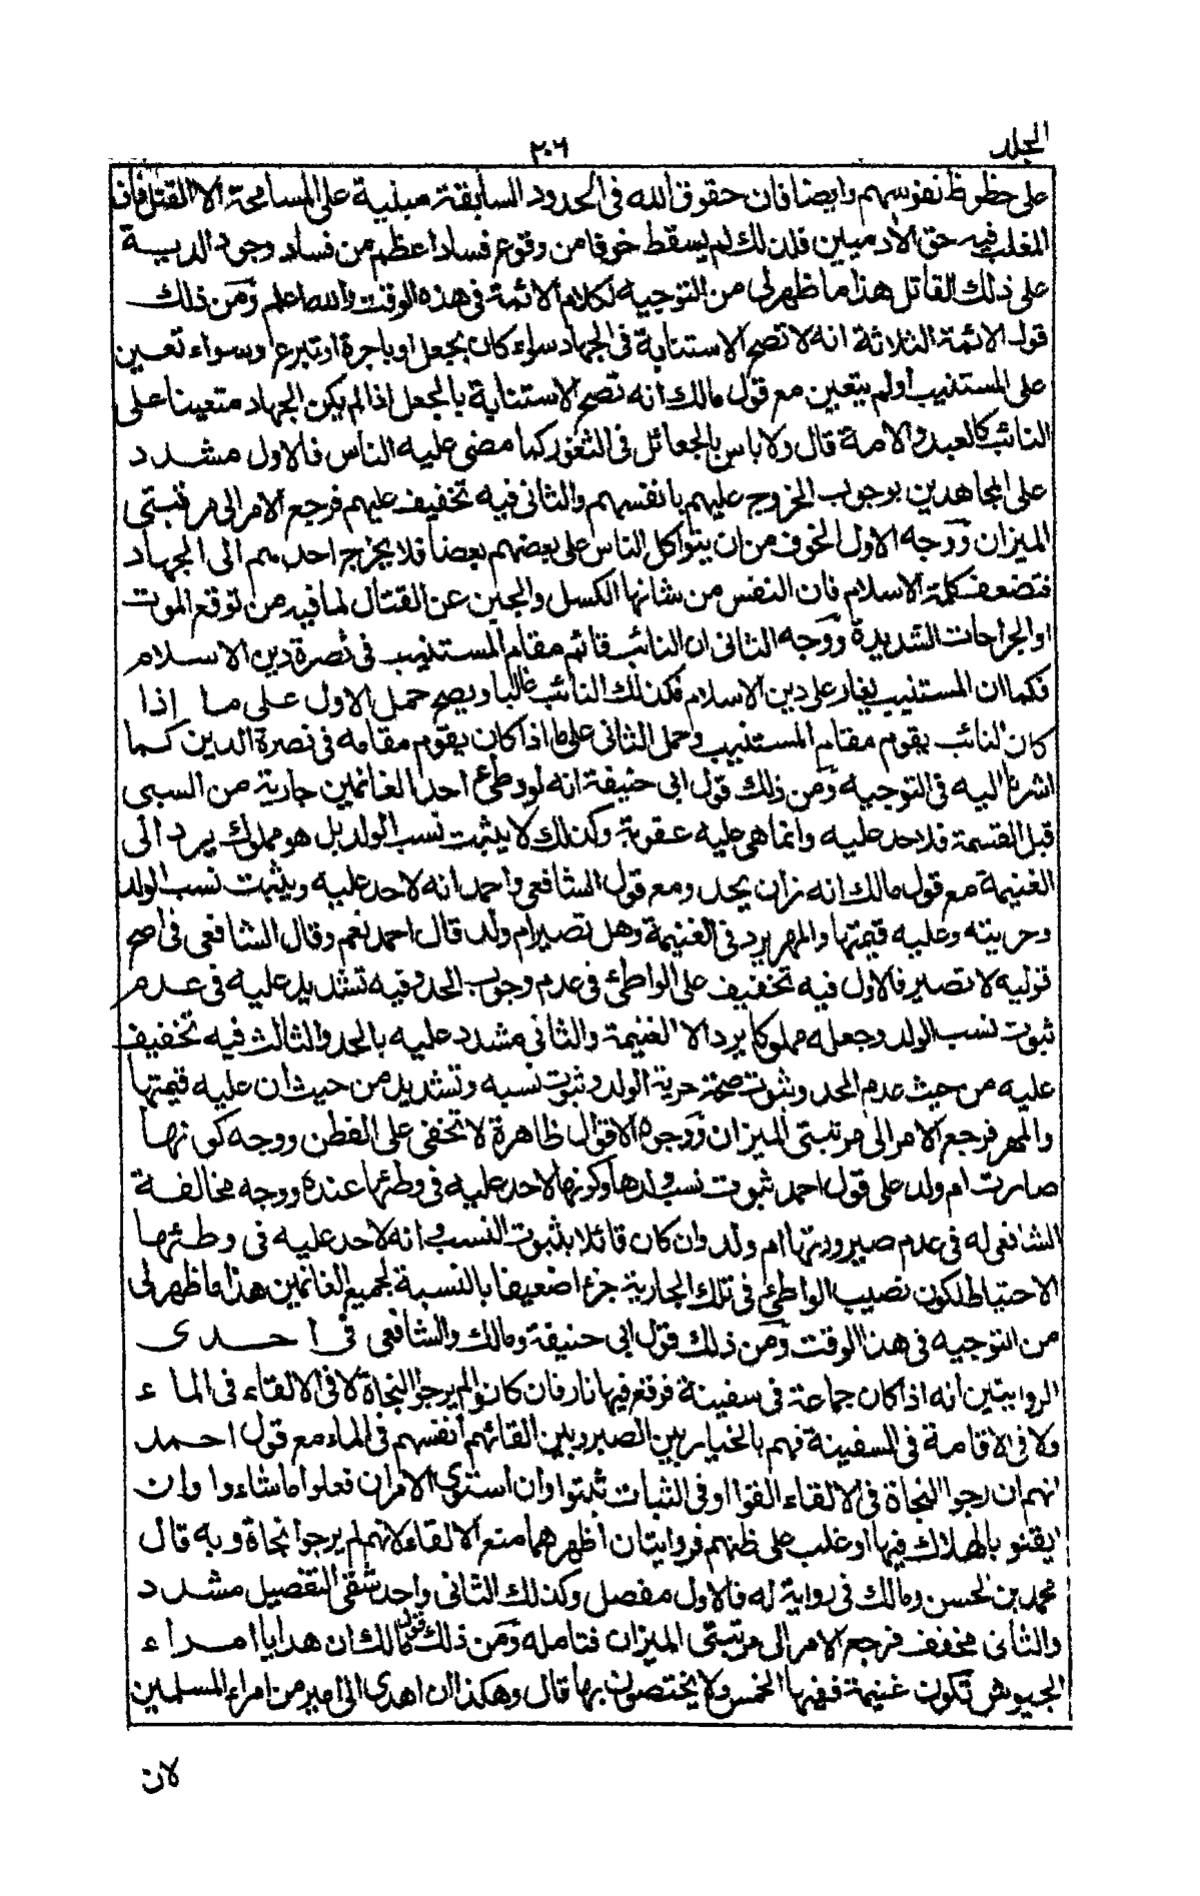 الجلد
٢٠٦
على حظوظ نفوسهم وايضا فان حقوق الله فى الحدود السابقة مبنية على المسامحة الا القتل فان
المغلب فيه حق الآدميين فلذلك لم يسقط خوفا من وقوع فساد اعظم من فساد وجود الريبة
على ذلك القاتل هذا ما ظهر لى من التوجيه لكلام الائمة فى هذه الوقت والله اعلم ومن ذلك
قول الائمة الثلاثة انه لا تصح الاستنابة فى الجهاد سواء كان بجعل او باجرة او تبرع وسواء تعين
على المستنيب او لم يتعين مع قول مالك انه تصح الاستنابة بالجعل اذا لم يكن الجهاد متعينا على
النائب كالعبد والامة قال ولا باس بالجعائل فى الثغور كما مضى عليه الناس فالاول مشدد
على المجاهدين بوجوب الخروج عليهم بانفسهم والثانى فيه تخفيف عليهم فرجع الامر الى مرتبتى
الميزان ووجه الاول الخوف من ان يتواكل الناس على بعضهم بعضا فلا يخرج احد منهم الى الجهاد
فتضعف كلمة الاسلام فان النفس من شانها الكسل والجبن عن القتال لما فيه من توقع الموت
او الجراحات الشديدة ووجه الثانى ان النائب قائم مقام المستنيب فى نصرة دين الاسلام
فكما ان المستنيب يغار على دين الاسلام فكذلك النائب غالبا ويصح حمل الاول على ما اذا
كان النائب يقوم مقام المستنيب وحمل الثانى على ما اذا كان يقوم مقامه فى نصرة الدين كما
اشرنا اليه فى التوجيه ومن ذلك قول ابى حنيفة انه لو وطئ احد الغانمين جارية من السبى
قبل القسمة فلا حد عليه وانما هى عليه عقوبة وكذلك لا يثبت نسب الولد بل هو مملوك يرد الى
الغنيمة مع قول مالك انه زان يحد ومع قول الشافعى واحمد انه لا حد عليه ويثبت نسب الولد
وحريته وعليه قيمتها والمهر يرد فى الغنيمة وهل تصير ام ولد قال احمد نعم وقال الشافعى فى اصح
قوليه لا تصير فالاول فيه تخفيف على الواطئ فى عدم وجوب الحد وفيه تشديد عليه فى عدم
ثبوت نسب الولد وجعله مملوكا يرد الا الغنيمة والثانى مشدد عليه بالحد والثالث فيه تخفيف
عليه من حيث عدم الحد وثبوت صحة حرية الولد وثبوت نسبه وتشديد من حيث ان عليه قيمتها
والمهر فرجع الامر الى مرتبتى الميزان ووجوه الاقوال ظاهرة لا تخفى على الفطن ووجه كونها
صارت ام ولد على قول احمد ثبوت نسب ولدها وكونها لا حد عليه فى وطئها عنده ووجه مخالفة
الشافعى له فى عدم صيرورتها ام ولد وان كان قائلا بثبوت النسب وانه لا حد عليه فى وطئها
الاحتياط لكون نصيب الواطئ فى تلك الجارية جزءا ضعيفا بالنسبة لجميع الغانمين هذا ما ظهر لى
من التوجيه فى هذا الوقت ومن ذلك قول ابى حنيفة ومالك والشافعى فى احدى
الروايتين انه اذا كان جماعة فى سفينة فوقع فيها نار فان كانوا لم يرجوا النجاة لا فى الالقاء فى الماء
ولا فى الاقامة فى السفينة فهم بالخيار بين الصبر وبين القائهم انفسهم فى الماء مع قول احمد
انهم ان رجوا النجاة فى الالقاء القوا او فى الثبات ثبتوا وان استوى الامران فعلوا ما شاءوا وان
ايقنو بالهلاك فيها او غلب على ظنهم فروايتان اظهرهما منع الالقاء لانهم لم يرجوا نجاة وبه قال
محمد بن الحسن ومالك فى رواية له فالاول مفصل وكذلك الثانى واحد شقى التفصيل مشدد
والثانى مخفف فرجع الامر الى مرتبتى الميزان فتامله ومن ذلك قول مالك ان هدايا امراء
الجيوش تكون غنيمة ففيها الخمس ولا يختصون بها قال وهكذا ان اهدى الى امير من امراء المسلمين
لان